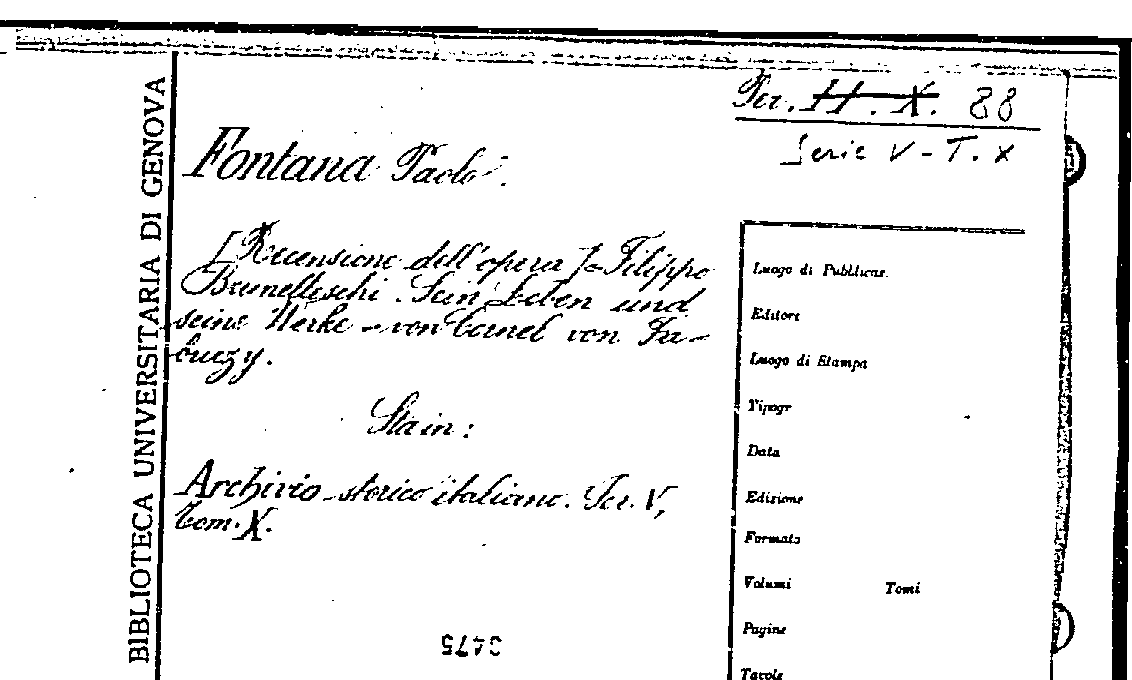 BIBLIOTECA UNIVERSITARIA DI GENOVA
Per. II. X. 88
Serie V - T. X
Fontana Paolo.
[Recensione dell'opera]-Filippo
Brunelleschi. Sein Leben und
seine Werke - von Cornel von Fa-
briczy.
Sta in:
Archivio storico italiano. Ser. V,
Tom. X.
Luogo di Pubblicaz.
Editore
Luogo di Stampa
Tipogr
Data
Edizione
Formato
Volumi Tomi
Pagine
Tavole